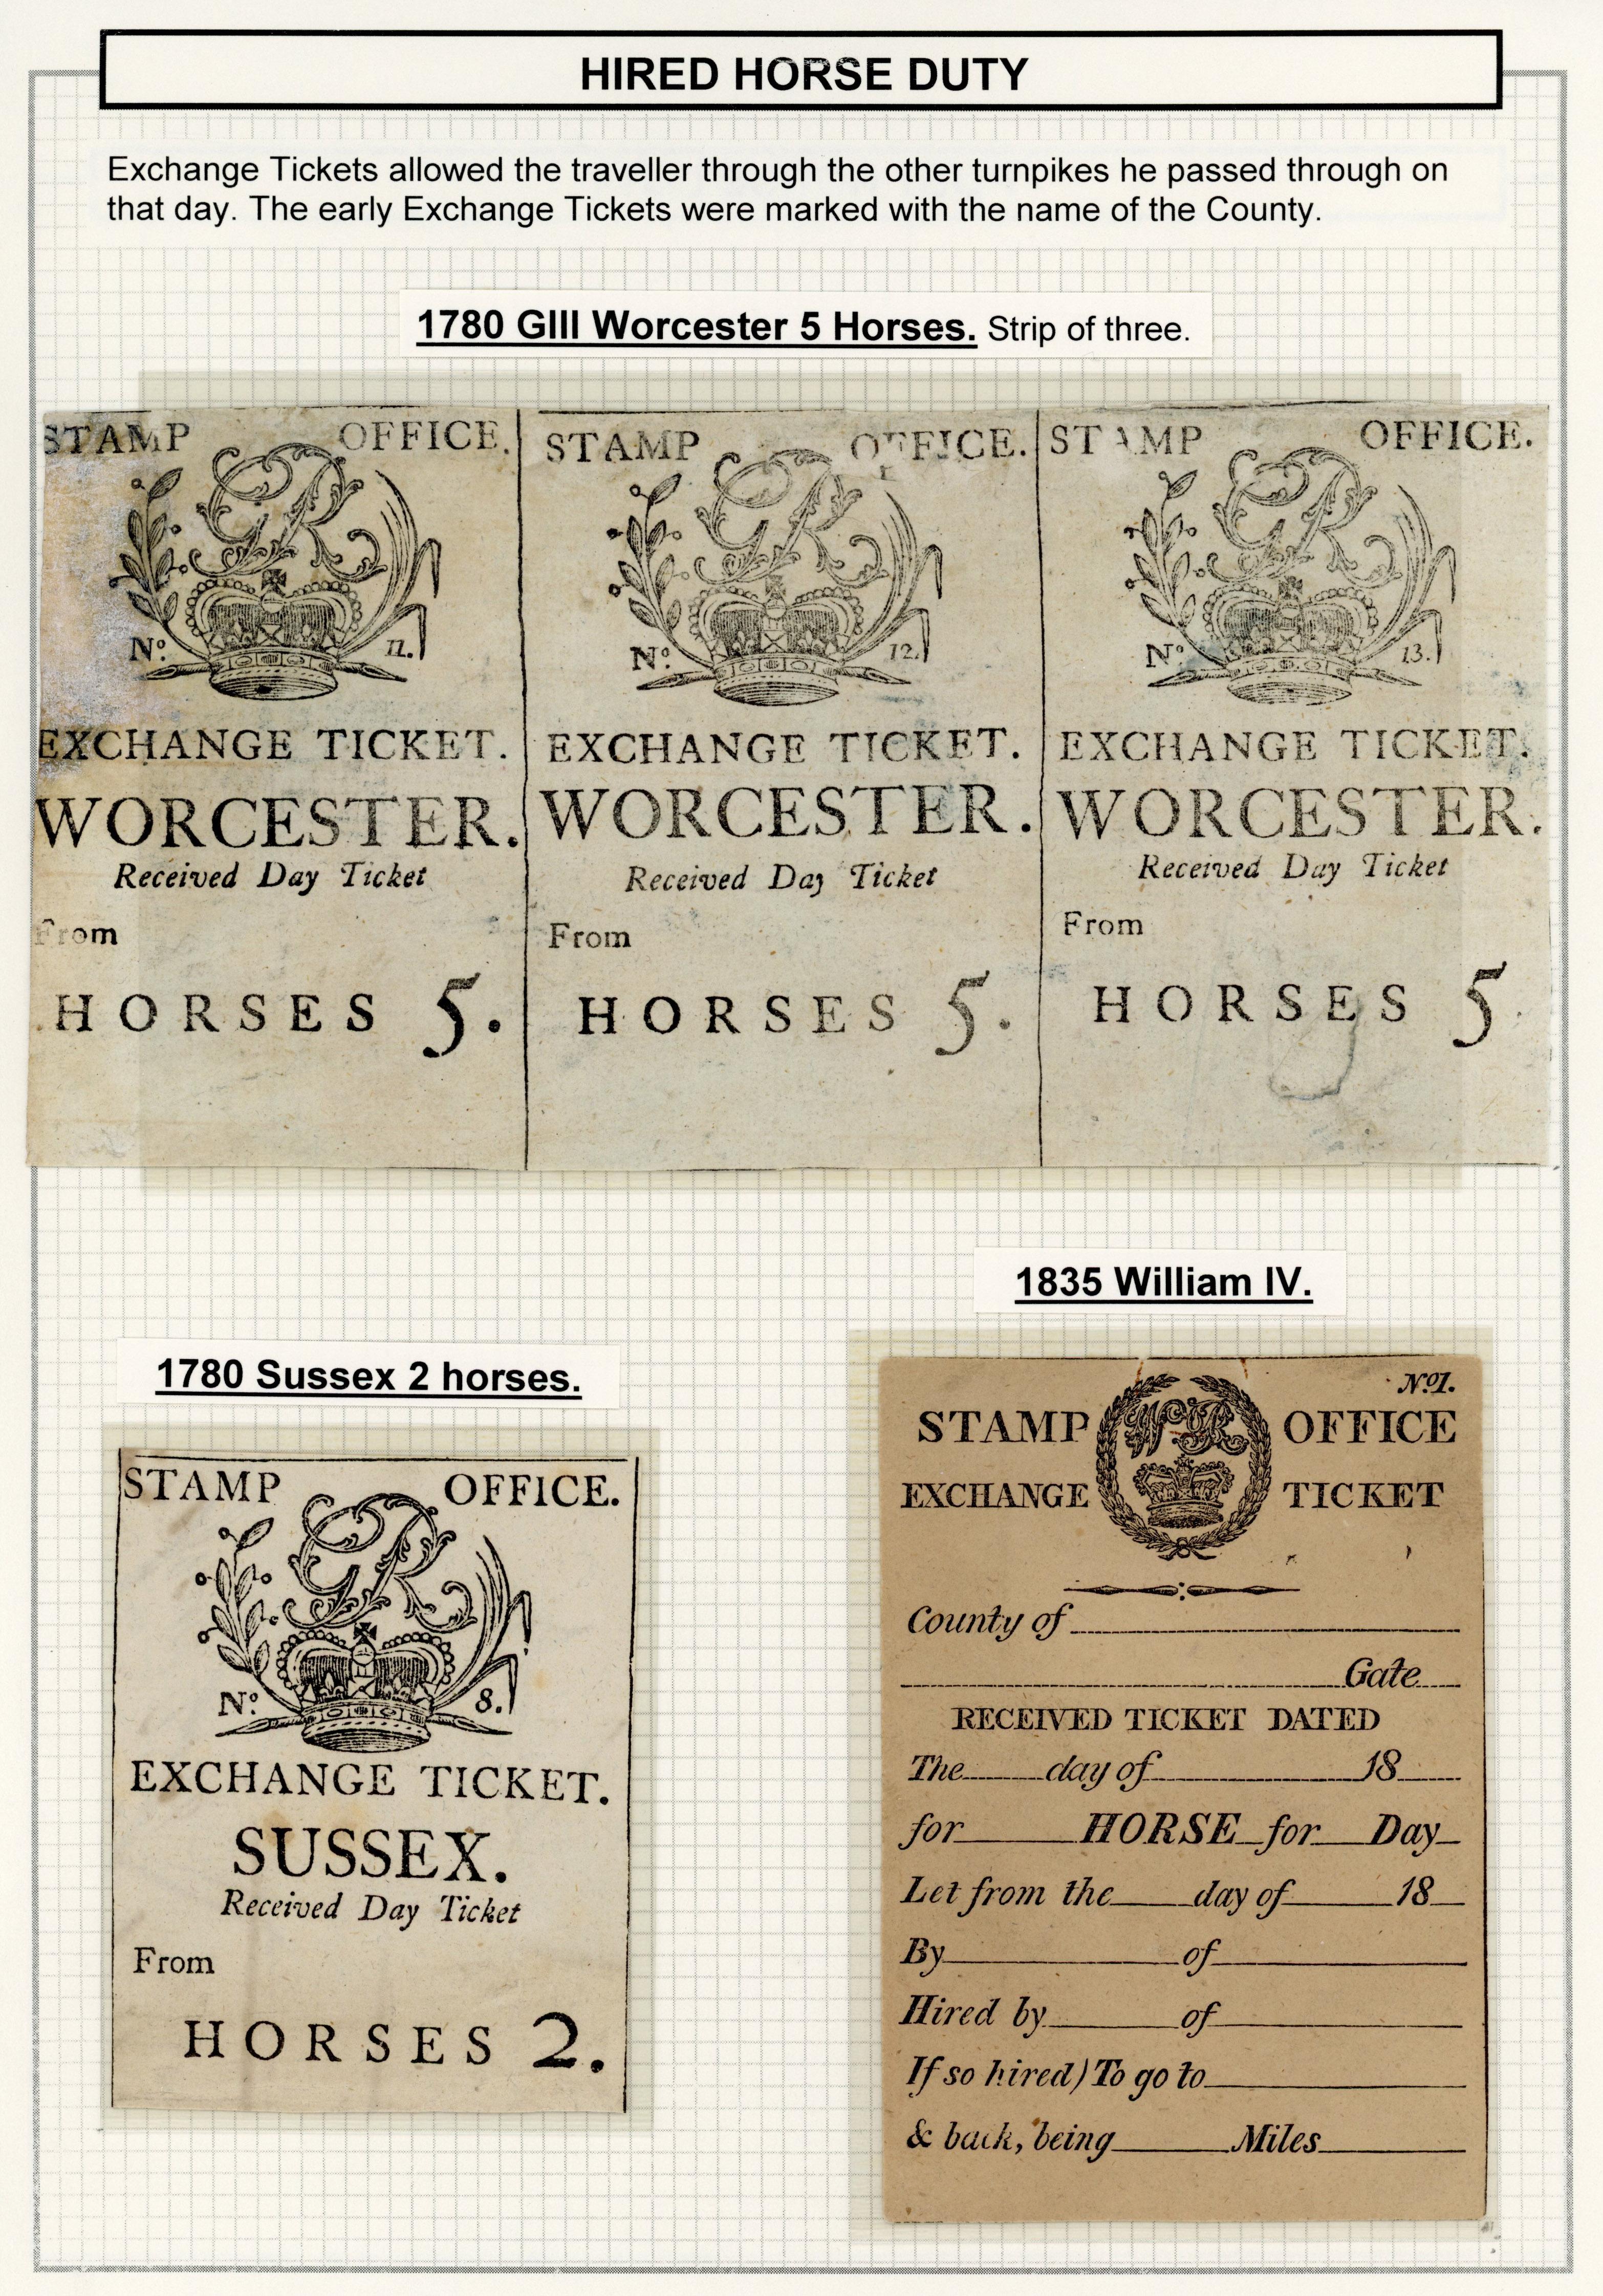 HIRED HORSE DUTY
Exchange Tickets allowed the traveller through the other turnpikes he passed through on
that day. The early Exchange Tickets were marked with the name of the County.
1780 GIII Worcester 5 Horses. Strip of three.
STAMP OFFICE.
GR
No. 11.
EXCHANGE TICKET.
WORCESTER.
Received Day Ticket
From
HORSES 5.
STAMP OFFICE.
GR
No. 12.
EXCHANGE TICKET.
WORCESTER.
Received Day Ticket
From
HORSES 5.
STAMP OFFICE.
GR
No. 13.
EXCHANGE TICKET.
WORCESTER.
Received Day Ticket
From
HORSES 5.
1780 Sussex 2 horses.
STAMP OFFICE.
GR
No. 8.
EXCHANGE TICKET.
SUSSEX.
Received Day Ticket
From
HORSES 2.
1835 William IV.
No 1.
STAMP WR OFFICE
EXCHANGE TICKET
County of
Gate
RECEIVED TICKET DATED
The day of 18
for HORSE for Day
Let from the day of 18
By of
Hired by of
If so hired) To go to
& back, being Miles